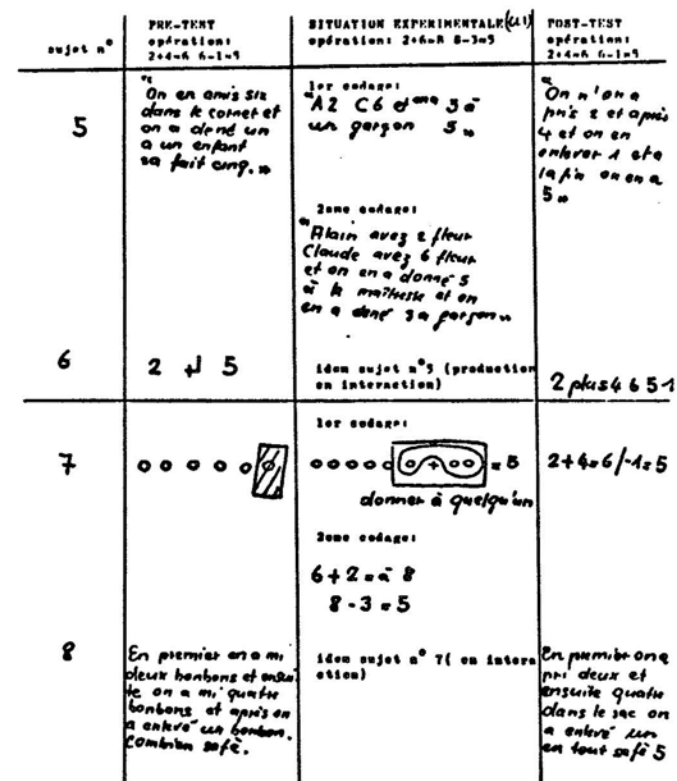 PRE-TEST
opération:
2+4=6 6-1=5
SITUATION EXPERIMENTALE (U1)
opération: 2+6=8 8-3=5
POST-TEST
opération:
2+4=6 6-1=5
sujet n°
5
"On en amis six
dans le cornet et
on a dené un
a un enfant
sa fait cinq."
1er codage:
"A2 C6 3 à
un garçon 5"
2ème codage:
"Alain avez 2 fleur
Claude avez 6 fleur
et on en a donné 5
à la maîtresse et on
en a dené 3 a garçon"
"On n'on a
pris 2 et après
4 et on en
enlever 1 et a
la fin on en a
5"
6
2 5
idem sujet n°5 (production
en interaction)
2 plus 4 6 5 1
7
1er codage:
+ = 5
donner à quelqu'un
2ème codage:
6+2 = à 8
8-3 = 5
2+4=6/-1=5
8
En premier on a mi
deux bonbons et ensui
te on a mi quatre
bonbons et après on
a enlevé un bonbon.
Combien safè.
idem sujet n° 7( en intera
ction)
En premier on a
pri deux et
ensuite quatre
dans le sac on
a enlevé un
en tout safè 5